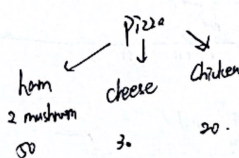 pizza
ham
2 mushrom
50
cheese
30
chicken
20.